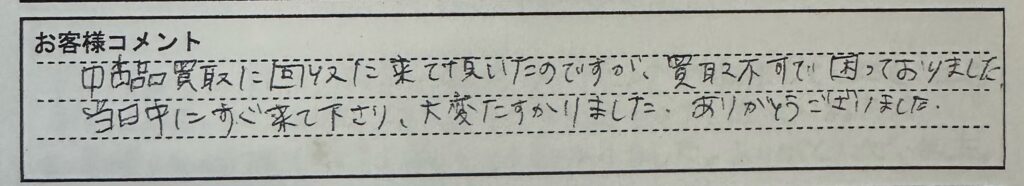 お客様コメント
中古品買取に回収に来て頂いたのですが、買取不可で困っておりました
当日中にすぐ来て下さり、大変たすかりました。ありがとうございました。